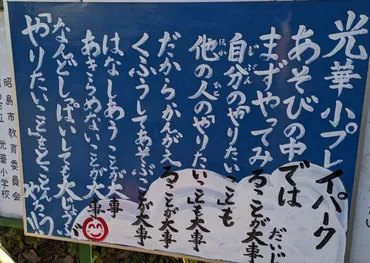 光華小プレイパーク
あそびの中では
まずやてみることが大事
だいじ
自分のやりたいことも
じぶん
他の人の「やりたい」ことも大事
ほか
だからかんがえることが大事
くふうしてあそぶことが大事
はなしあうことが大事
あきらめないことが大事
なんどしっぱいしても大じょうぶ
「やりたい」をとことん
昭島市教育委員会
光華小学校